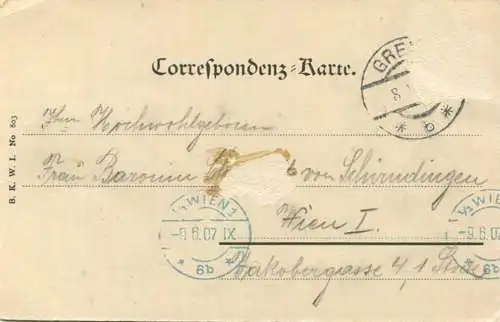 Correspondenz-Karte.
GRE
8
b
Ihrer Hochwohlgeboren
Frau Baronin von Schirndingen
Wien I.
Jakobergasse 4, 1. Stock
1/1 WIEN 1
-9.6.07 IX
* 6b *
1/1 WIEN 1
-9.6.07
6b
B. K. W. I. No 803